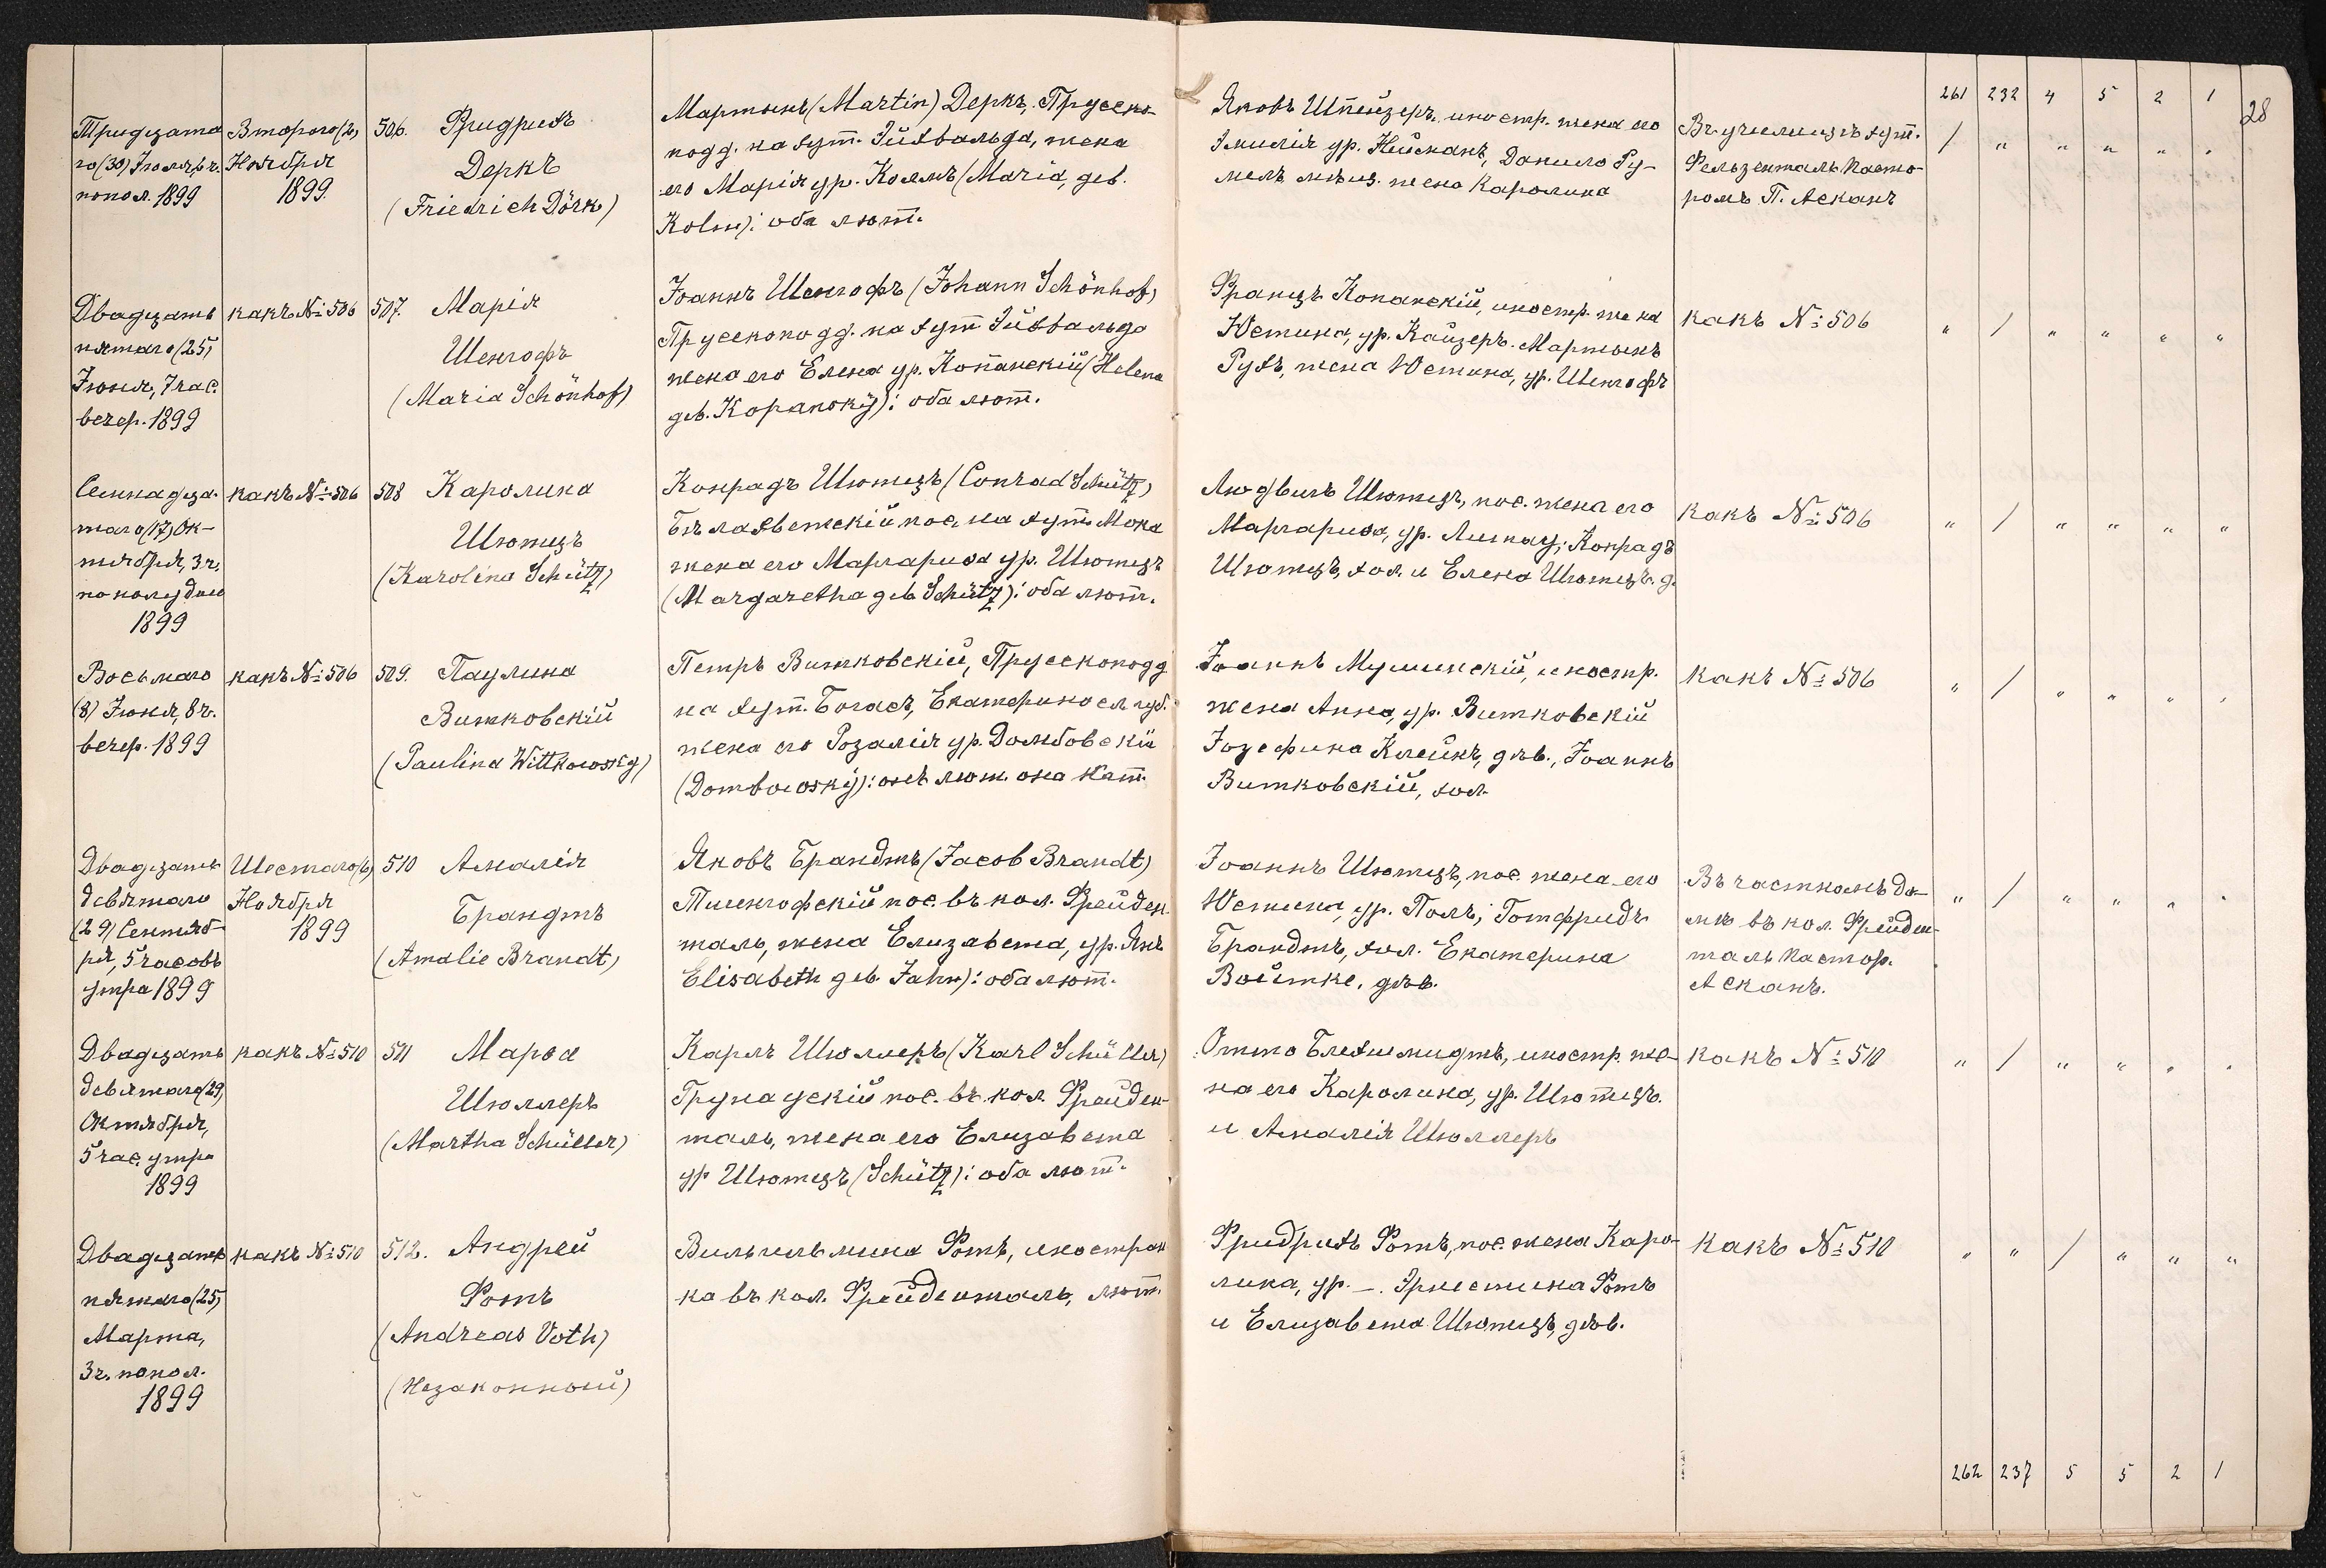 261 232 4 5 2 1
28
Тридцата
го (30) Іюля, ч.
попол. 1899
Второго (2)
Ноября
1899.
506. Фридрихъ
Деркъ
(Friedrich Dörk)
Мартынъ (Martin) Деркъ, Прусско-
подд. на хут. Эйхвальда, жена
его Марія ур. Колмъ (Maria, geb.
Kolm): оба лют.
Яковъ Шпенцеръ, иностр. жена его
Эмилія ур. Нейманъ, Данило Ру-
мель мѣщ. жена Каролина
Въ училищѣ хут.
Фельзенталь Пасто-
ромъ П. Асканъ
/ " " " " "
Двадцать
пятаго (25)
Іюня, 7 час.
вечер. 1899
какъ №: 506
507. Марія
Шенгофъ
(Maria Schönhof)
Іоаннъ Шенгофъ (Johann Schönhof)
Прусскоподд. на хут Эйхвальдѣ
жена его Елена ур. Копанскій (Helena
geb. Kopansky): оба лют.
Францъ Копанскій, иностр. жена
Юстина, ур. Кайзеръ. Мартынъ
Рухъ, жена Юстина, ур. Шенгофъ
какъ №: 506
" / " " " "
Семнадца-
таго (17) Ок-
тября, 3 ч.
пополудни
1899
какъ №: 506
508 Каролина
Шютцъ
(Karolina Schütz)
Конрадъ Шютцъ (Conrad Schütz)
Бѣлахветскій пос. на хут. Мока
жена его Маргариѳа ур. Шютцъ
(Margaretha geb Schütz): оба лют.
Людвигъ Шютцъ, пос. жена его
Маргариѳа, ур. Липау; Конрадъ
Шютцъ, хол. и Елена Шютцъ. д.
какъ №: 506
" / " " " "
Восьмаго
(8) Іюня, 8 ч.
вечер. 1899
какъ №: 506
509. Паулина
Витковскій
(Paulina Wittkowsky)
Петръ Витковскій, Прусскоподд
на хут. Богаст, Екатериносл губ.
жена его Розалія ур. Домбовскій
(Dombowsky): онъ лют. она Кат.
Іоаннъ Мушинскій, иностр.
жена Анна, ур. Витковскій
Іозефина Клейнъ, дѣв., Іоаннъ
Витковскій, хол.
какъ №: 506
" / " " " "
Двадцать
девятаго
(29) Сентяб-
ря, 5 часовъ
утра 1899
Шестаго (6)
Ноября
1899
510 Амалія
Брандтъ
(Amalie Brandt)
Яковъ Брандтъ (Jacob Brandt)
Тигенгофскій пос. въ кол. Фрейден-
таль, жена Елизавета, ур. Янъ
Elisabeth geb. Jahn): оба лют.
Іоаннъ Шютцъ, пос. жена его
Юстина, ур. Поль; Готфридъ
Брандтъ, хол. Екатерина
Войтке, дѣв.
Въ частномъ до-
мѣ въ кол. Фрейден-
таль Пастор.
Асканъ.
" / " " " "
Двадцать
девятаго (29)
Октября,
5 час. утра
1899
какъ №: 510
511 Марѳа
Шюллеръ
(Martha Schüller)
Карлъ Шюллеръ (Karl Schüller)
Грунаускій пос. въ кол. Фрейден-
таль, жена его Елизавета
ур Шютцъ (Schütz): оба лют.
Отто Блехшмидтъ, иностр. же-
на его Каролина, ур. Шютцъ.
и Амалія Шюллеръ
какъ №: 510
" / " " " "
Двадцать
пятаго (25)
Марта,
3 ч. попол.
1899
какъ №: 510
512. Андрей
Фотъ
(Andreas Voth)
(незаконный)
Вильгельмина Фотъ, иностран
ка въ кол. Фрейденталь, лют.
Фридрихъ Фотъ, пос. жена Каро-
лина, ур. —. Эрнестина Фотъ
и Елизавета Шютцъ, дѣв.
какъ №: 510
" " / " " "
262 237 5 5 2 1